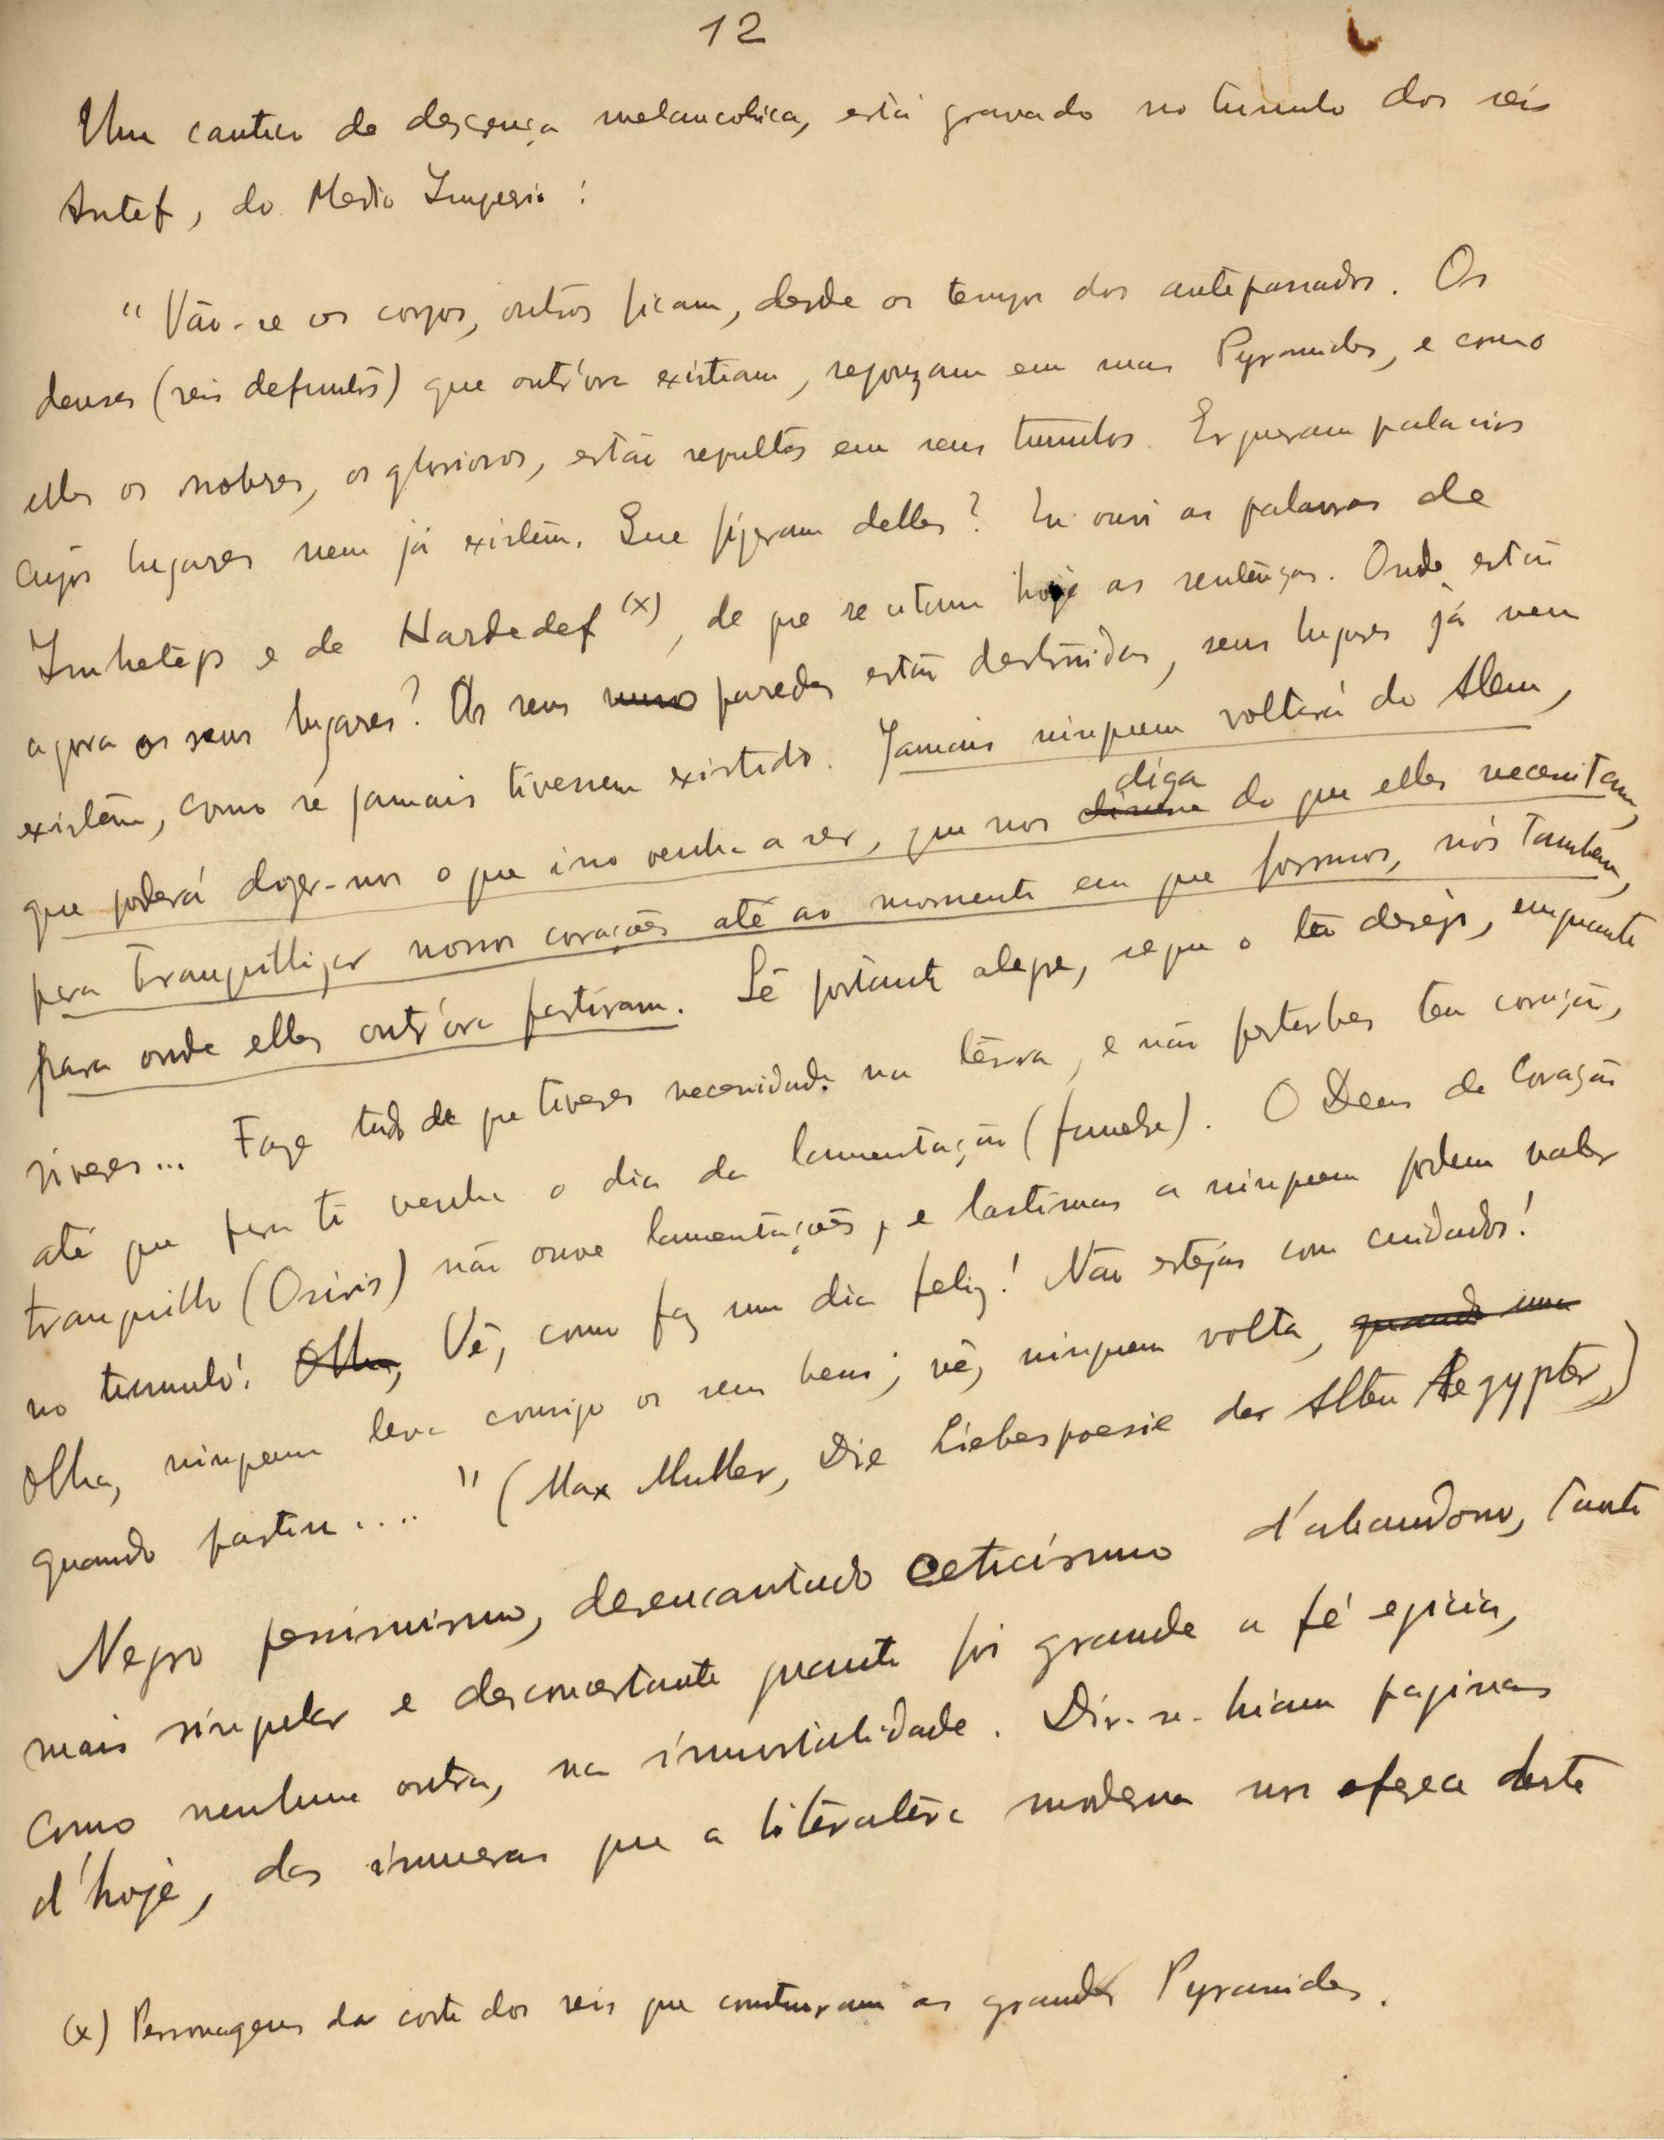 12
Um cantico de descrença melancolica, está gravado no tumulo dos reis
Antef, do Medio Imperio :
" Vão-se os corpos, outros ficam, desde os tempos dos antepassados. Os
deuses (reis defuntos) que outr'ora existiam, repouzam em suas Pyramides, e como
elles os nobres, os gloriosos, estão sepultos em seus tumulos. Ergueram palacios
cujos lugares nem já existem. Que fizeram delles? Eu ouvi as palavras de
Imhetep e de Hardedef (x), de que se citam hoje as sentenças. Onde estão
agora os seus lugares? As seus muro paredes estão destruidas, seus lugares já nem
existem, como se jamais tivessem existido. Jamais ninguem voltará do Alem,
que poderá dizer-nos o que isso venha a ser, que nos disesse diga do que elles necessitam,
para tranquillizar nossos corações até ao momento em que formos, nós tambem,
para onde elles outr'ora partiram. Sê portanto alegre, segue o teu desejo, emquanto
viveres... Faze tudo de que tiveres necessidade na terra, e não perturbes teu coração,
até que para ti venha o dia da lamentação (funebre). O Deus de Coração
tranquillo (Osiris) não ouve lamentações, e lastimas a ninguem podem valer
no tumulo! Olha, Vê, como faz um dia feliz! Não estejas com cuidados!
Olha, ninguem leva comsigo os seus bens; vê, ninguem volta, quando uma
quando partiu .... " (Max Muller, Die Liebespoesie der Alten Aegypter)
Negro pessimismo, desencantado ceticismo d'abandono, tanto
mais singular e desconcertante quanto foi grande a fé egicia,
como nenhuma outra, na immortalidade. Dir-se-hiam paginas
d'hoje, das inumeras que a literatura moderna nos oferece deste
(x) Personagens da corte dos reis que construiram as grandes Pyramides.